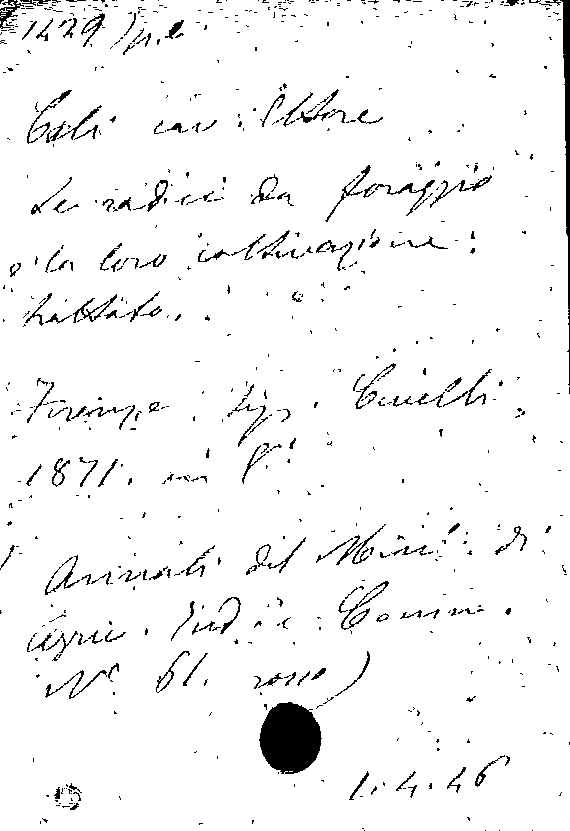 1429) p.e
Celi cav. Ettore
Le radici da foraggio
e la loro coltivazione:
trattato.
Firenze. Tip. Civelli,
1871. in 8°
Annali del Min. di
Agric. Ind. e Comm.
N° 61. rosso)
1.4.46